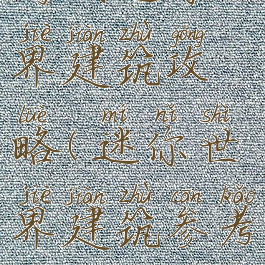 jiè jiàn zhù gōng
界建筑攻
lüè mí nǐ shì
略(迷你世
jiè jiàn zhù cān kǎo
界建筑参考